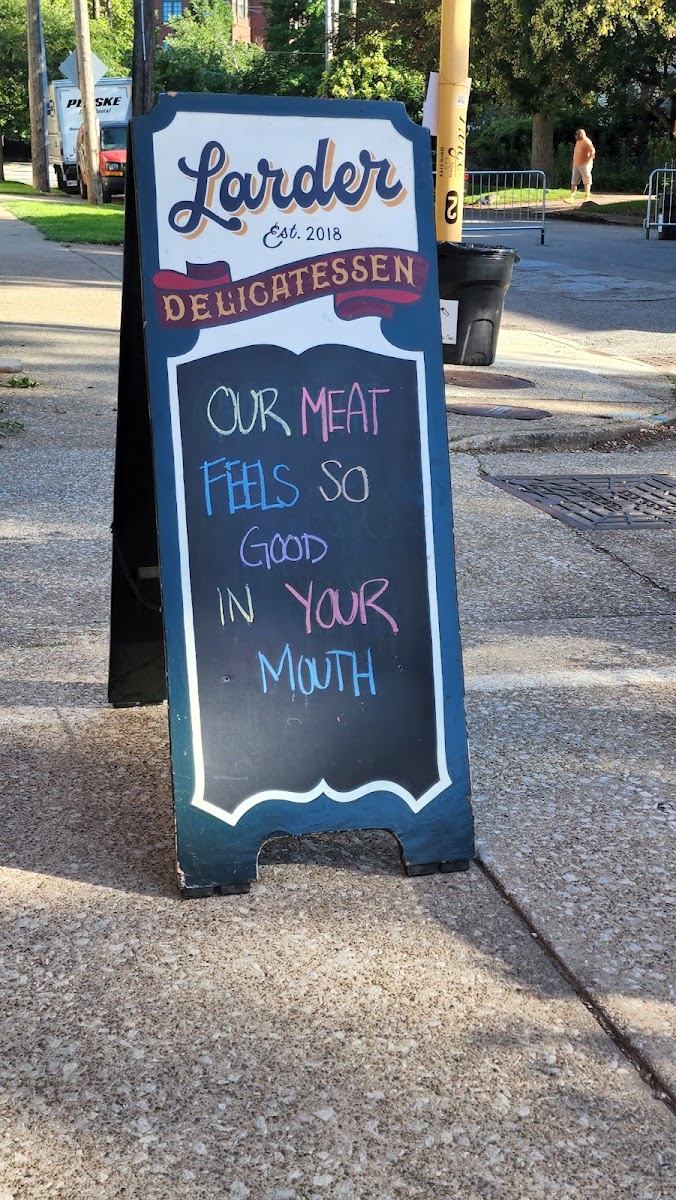 PENSKE
Larder
Est. 2018
DELICATESSEN
OUR MEAT
FEELS SO
GOOD
IN YOUR
MOUTH
2